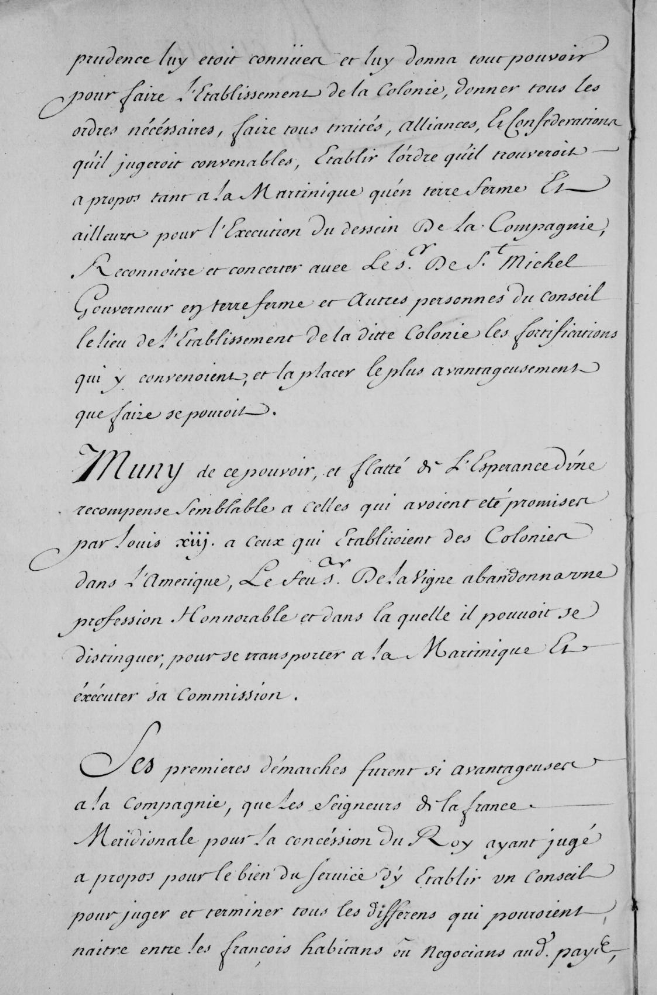 prudence luy etoit connües et luy donna tout pouvoir
pour faire L'Etablissement de la Colonie, donner tous les
ordres nécéssaires, faire tous traités, alliances, Et Confederations
qu'il jugeroit convenables, Etablir l'ordre qu'il trouveroit
a propos tant a la Martinique qu'en terre ferme Et
ailleurs pour l'Execution du dessein De la Compagnie,
Reconnoitre et concerter avec Le s.r De S.t Michel
Gouverneur en terre ferme et Autres personnes du conseil
le lieu de L'Etablissement de la ditte Colonie les fortifications
qui y convenoient, et la placer le plus avantageusement
que faire se pouroit.
Muny de ce pouvoir, et flatté de L'Esperance d'vne
recompense semblable a celles qui avoient eté promises
par Louis xiij. a ceux qui Etabliroient des Colonies
dans L'Amerique, Le feu s.r De la Vigne abandonna vne
profession Honnorable et dans la quelle il pouvoit se
distinguer, pour se transporter a la Martinique Et
éxécuter sa Commission.
Ses premieres démarches furent si avantageuses
a la Compagnie, que Les Seigneurs de la france
Meridionale pour la concéssion du Roy ayant jugé
a propos pour le bien du service d'y Etablir vn Conseil
pour juger et terminer tous les differens qui pouroient
naitre entre les françois habitans où Negocians aud.